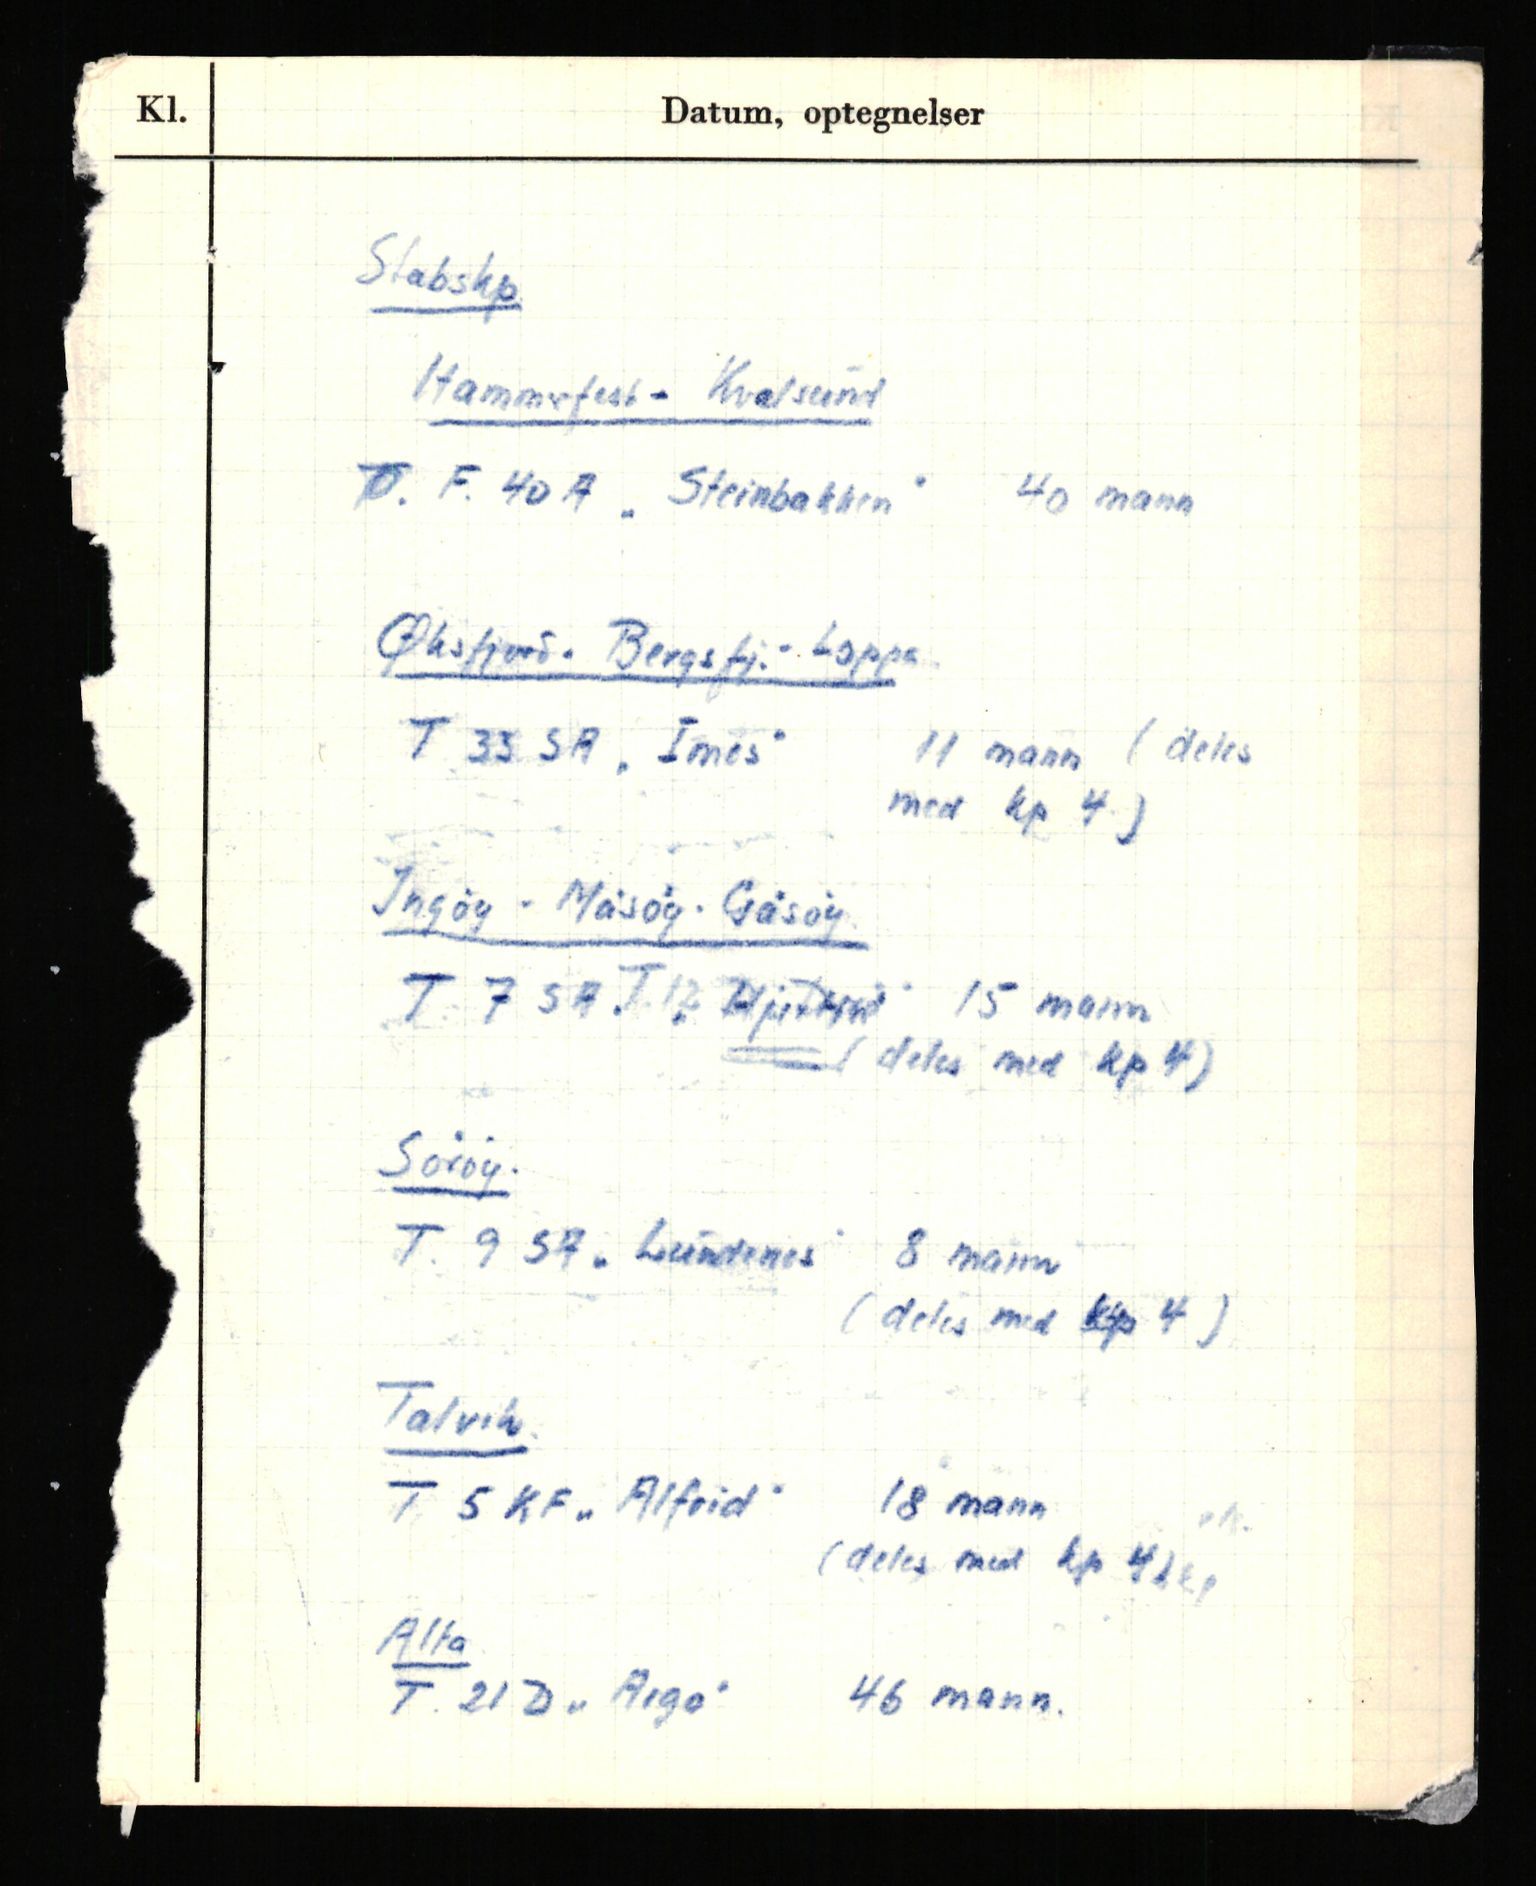 Kl. Datum, optegnelser
Stabskp
Hammerfest - Kvalsund
F. 40 A „Steinbakken" 40 mann
Øksfjord - Bergsfj. - Loppa.
T 33 SA „Imes" 11 mann (deles
med kp 4)
Ingöy - Måsöy - Gåsöy.
T. 7 SA. T. 12 15 mann
(deles med kp 4)
Söröy.
T. 9 SA „Lundenes" 8 mann
(deles med kp 4)
Talvik.
T. 5 KF „Alfrid" 18 mann
(deles med kp 4
Alta
T. 21 D „Argo" 46 mann.